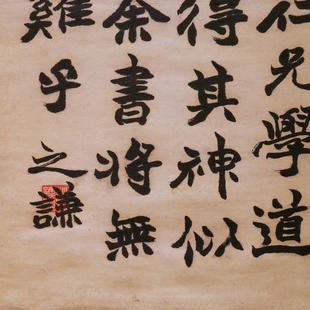 仁兄學道
得其神似
余書將無
雞乎之謙